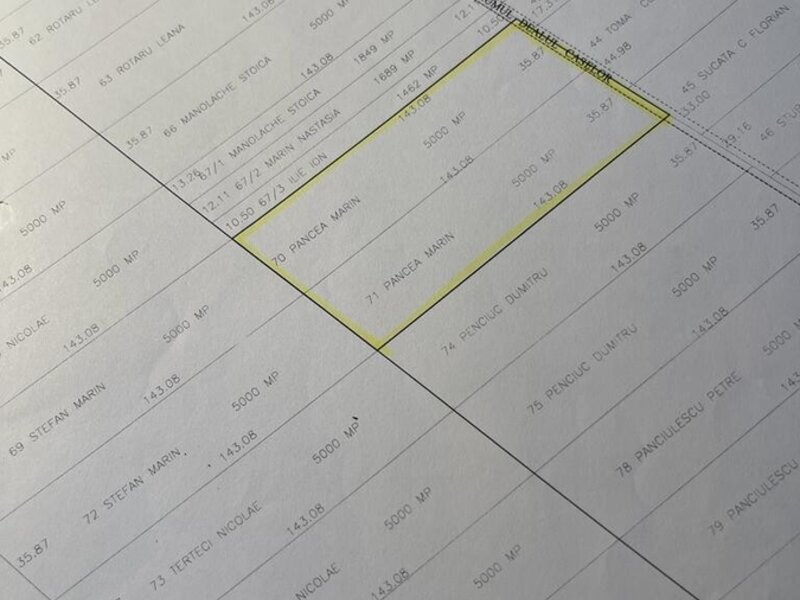 35.87
62 ROTARU ELENA
143.08
5000 MP
35.87
63 ROTARU LEANA
143.08
35.87
66 MANOLACHE STOICA
1849 MP
13.26
67/1 MANOLACHE STOICA
1689 MP
12.11
67/2 MARIN NASTASIA
1462 MP
10.50
67/3 ILIE ION
143.08
12.11
10.50
17.31
DEALUL CASELOR
44 TOMA
44.98
45 SUCATA C FLORIAN
33.00
46
70 PANCEA MARIN
5000 MP
35.87
143.08
71 PANCEA MARIN
5000 MP
35.87
143.08
74 PENCIUC DUMITRU
5000 MP
35.87
143.08
75 PENCIUC DUMITRU
5000 MP
35.87
143.08
78 PANCIULESCU PETRE
5000 MP
79 PANCIULESCU
MP
5000 MP
143.08
NICOLAE
5000 MP
143.08
69 STEFAN MARIN
5000 MP
143.08
72 STEFAN MARIN
5000 MP
143.08
35.87
73 TERTECI NICOLAE
5000 MP
143.08
NICOLAE
5000 MP
143.08
5000 MP